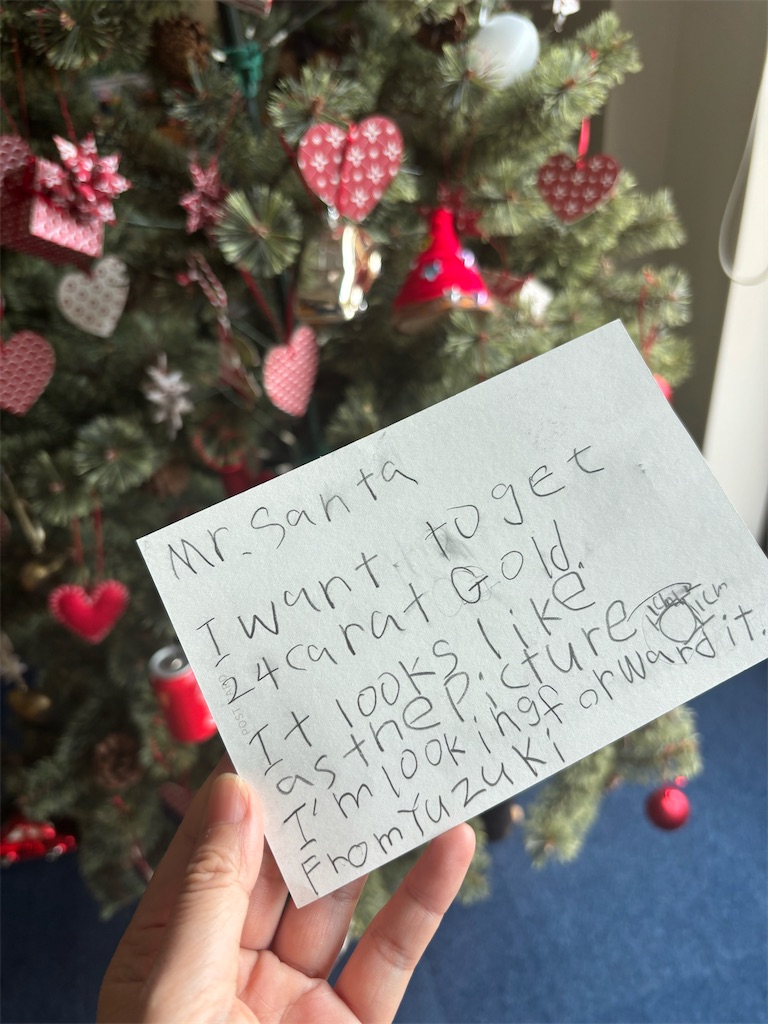 Mr. Santa
I want to get
24 carat Gold.
It looks like
as the picture 1cm 1cm
I'm looking forward it.
From Yuzuki
POST